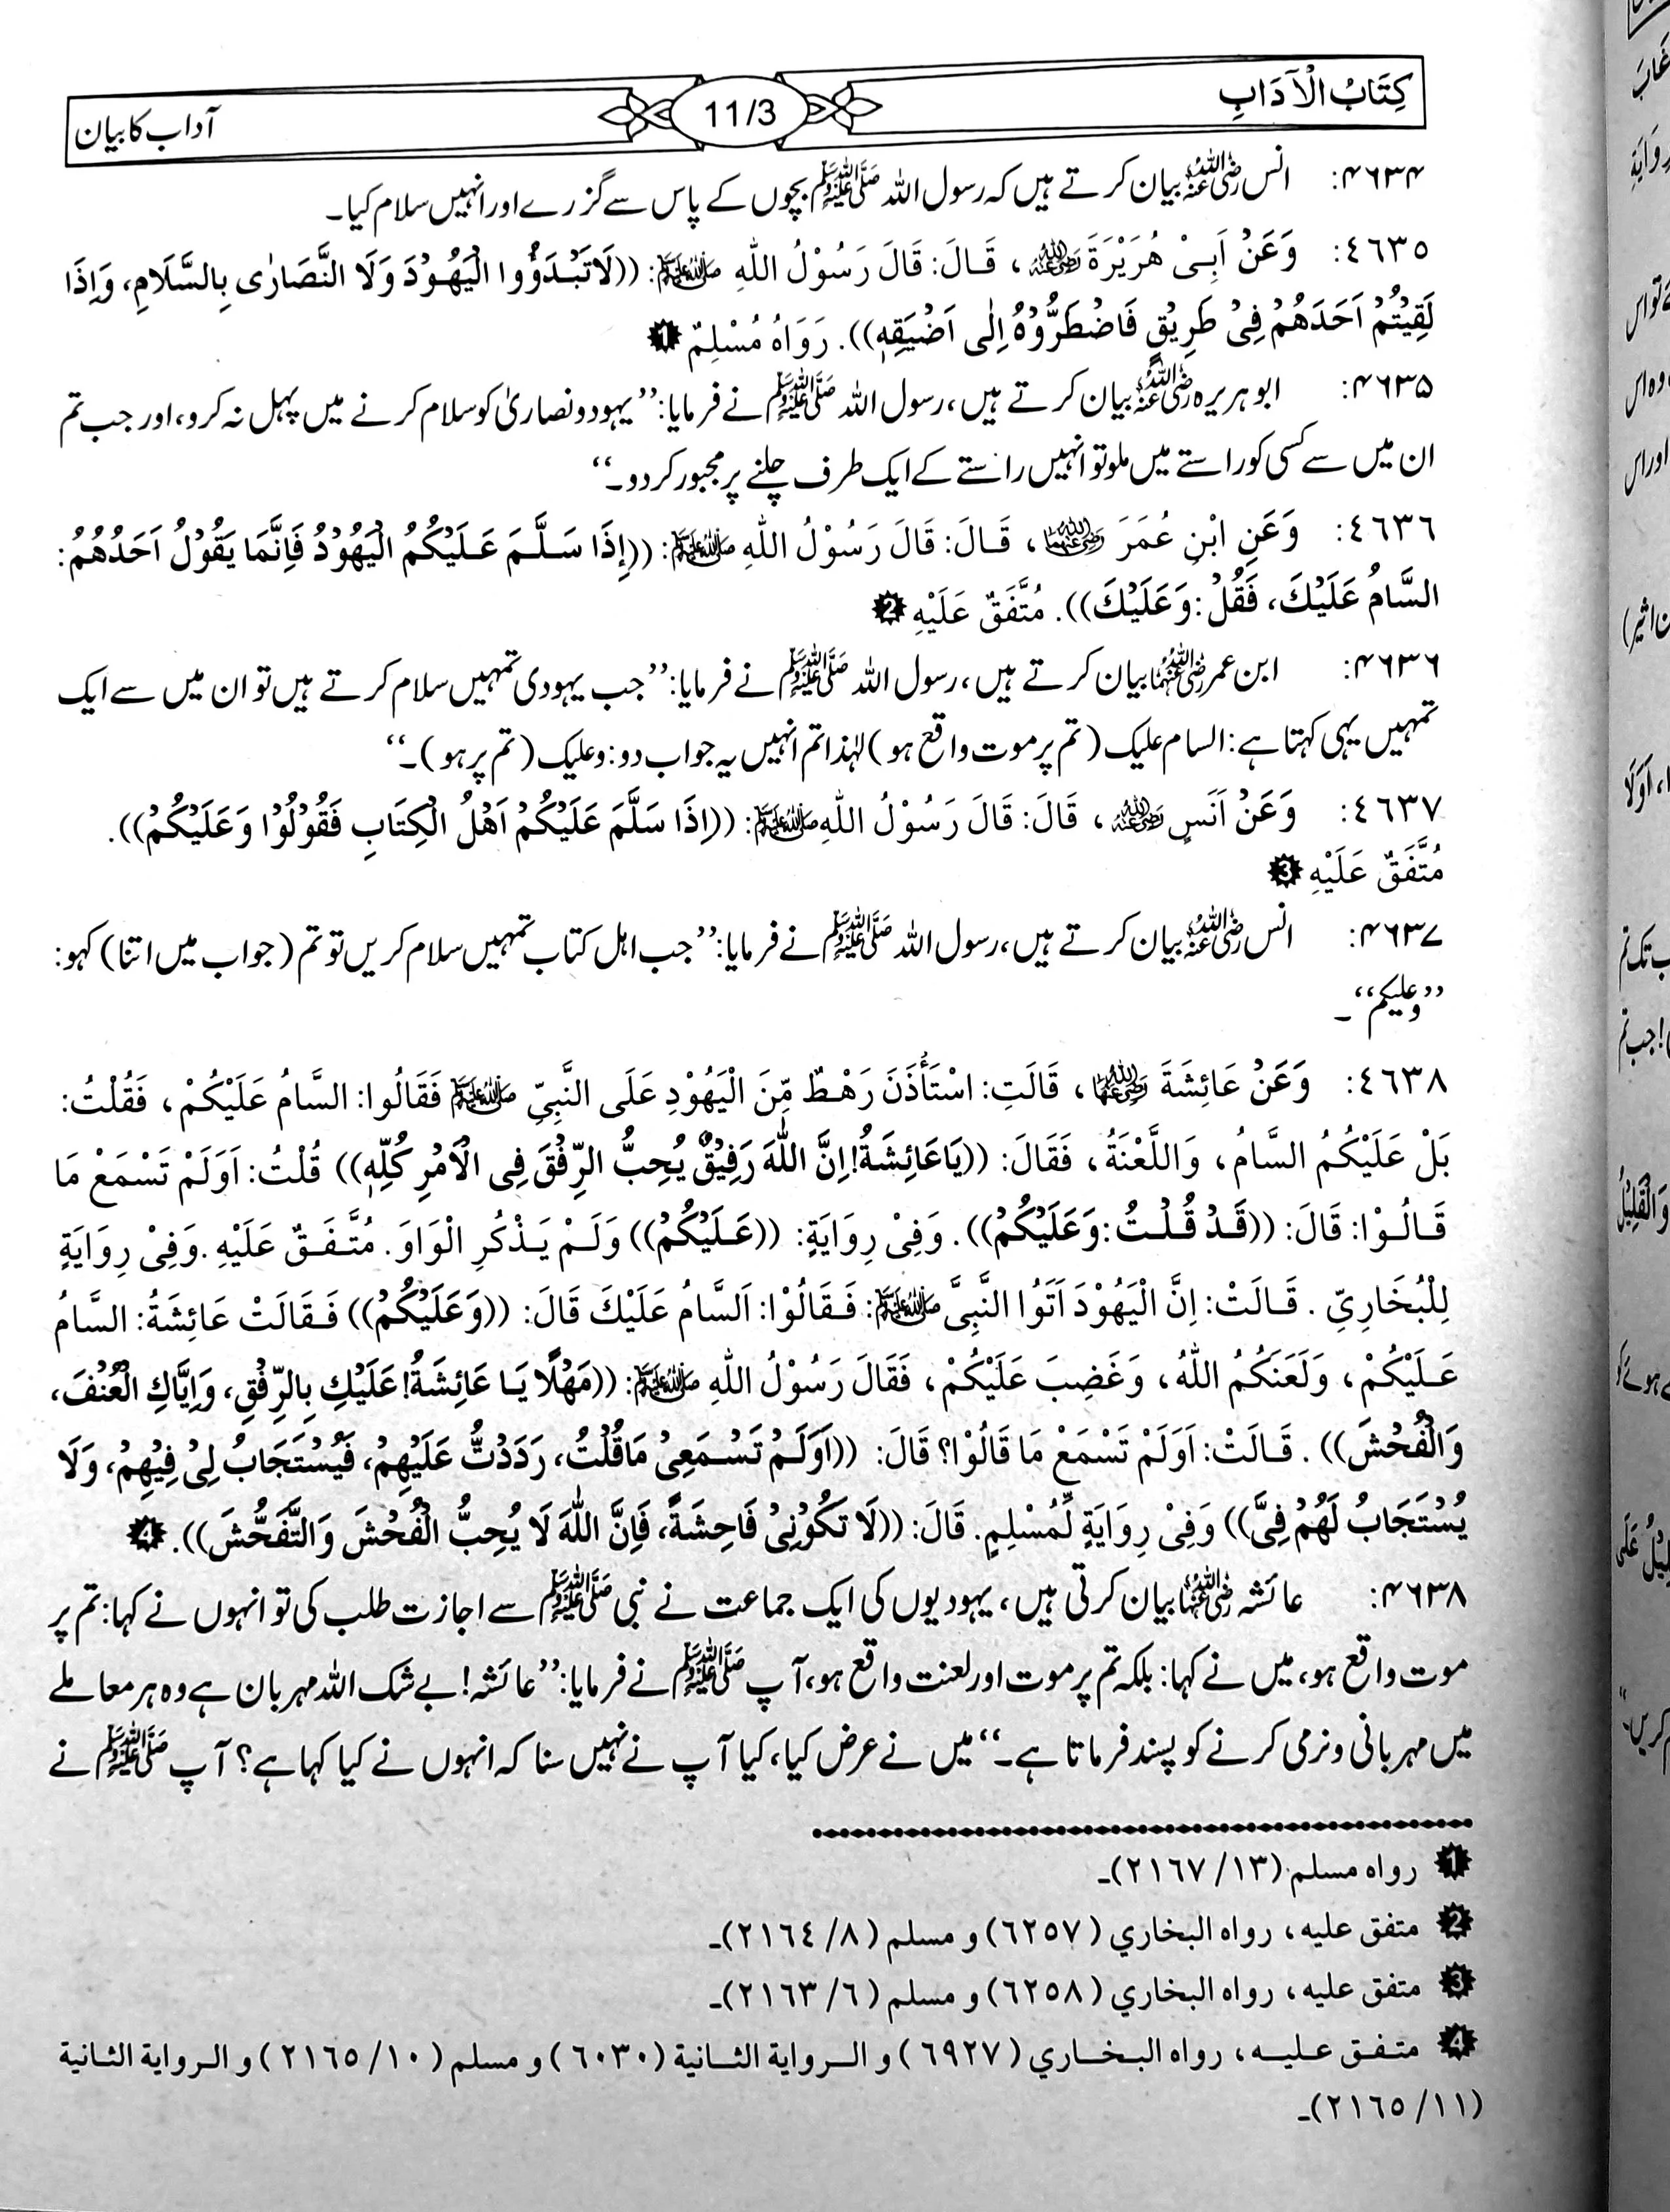 كِتَابُ الْآدَابِ
11/3
آداب کا بیان
۴۶۳۴: انس رضی اللہ عنہ بیان کرتے ہیں کہ رسول اللہ ﷺ بچوں کے پاس سے گزرے اور انہیں سلام کیا۔
٤٦٣٥: وَعَنْ اَبِیْ هُرَيْرَةَ رضی اللہ عنہ ، قَالَ: قَالَ رَسُوْلُ اللّٰهِ ﷺ: ((لَاتَبْدَؤُوا الْيَهُوْدَ وَلَا النَّصَارٰی بِالسَّلَامِ، وَاِذَا
لَقِيْتُمْ اَحَدَهُمْ فِیْ طَرِيْقٍ فَاضْطَرُّوْهُ اِلٰی اَضْيَقِهٖ)). رَوَاهُ مُسْلِمٌ ❶
۴۶۳۵: ابو ہریرہ رضی اللہ عنہ بیان کرتے ہیں، رسول اللہ ﷺ نے فرمایا: ’’یہود و نصاریٰ کو سلام کرنے میں پہل نہ کرو، اور جب تم
ان میں سے کسی کو راستے میں ملو تو انہیں راستے کے ایک طرف چلنے پر مجبور کر دو۔‘‘
٤٦٣٦: وَعَنِ ابْنِ عُمَرَ رضی اللہ عنہما ، قَالَ: قَالَ رَسُوْلُ اللّٰهِ ﷺ: ((إِذَا سَلَّمَ عَلَيْكُمُ الْيَهُوْدُ فَاِنَّمَا يَقُوْلُ اَحَدُهُمُ:
السَّامُ عَلَيْكَ، فَقُلْ: وَعَلَيْكَ)). مُتَّفَقٌ عَلَيْهِ ❷
۴۶۳۶: ابن عمر رضی اللہ عنہما بیان کرتے ہیں، رسول اللہ ﷺ نے فرمایا: ’’جب یہودی تمہیں سلام کرتے ہیں تو ان میں سے ایک
تمہیں یہی کہتا ہے: السام علیک (تم پر موت واقع ہو) لہٰذا تم انہیں یہ جواب دو: وعلیک (تم پر ہو)۔‘‘
٤٦٣٧: وَعَنْ اَنَسٍ رضی اللہ عنہ ، قَالَ: قَالَ رَسُوْلُ اللّٰهِ ﷺ: ((اِذَا سَلَّمَ عَلَيْكُمْ اَهْلُ الْكِتَابِ فَقُوْلُوْا وَعَلَيْكُمْ)).
مُتَّفَقٌ عَلَيْهِ ❸
۴۶۳۷: انس رضی اللہ عنہ بیان کرتے ہیں، رسول اللہ ﷺ نے فرمایا: ’’جب اہل کتاب تمہیں سلام کریں تو تم (جواب میں اتنا) کہو:
’’وعلیکم‘‘۔
٤٦٣٨: وَعَنْ عَائِشَةَ رضی اللہ عنہا ، قَالَتِ: اسْتَأْذَنَ رَهْطٌ مِّنَ الْيَهُوْدِ عَلَى النَّبِیِّ ﷺ فَقَالُوا: السَّامُ عَلَيْكُمْ، فَقُلْتُ:
بَلْ عَلَيْكُمُ السَّامُ، وَاللَّعْنَةُ، فَقَالَ: ((يَا عَائِشَةُ! اِنَّ اللّٰهَ رَفِيْقٌ يُحِبُّ الرِّفْقَ فِی الْاَمْرِ كُلِّهٖ)) قُلْتُ: اَوَلَمْ تَسْمَعْ مَا
قَالُوْا: قَالَ: ((قَدْ قُلْتُ: وَعَلَيْكُمْ)). وَفِیْ رِوَايَةٍ: ((عَلَيْكُمْ)) وَلَمْ يَذْكُرِ الْوَاوَ. مُتَّفَقٌ عَلَيْهِ. وَفِیْ رِوَايَةٍ
لِلْبُخَارِیِّ. قَالَتْ: اِنَّ الْيَهُوْدَ اَتَوُا النَّبِیَّ ﷺ: فَقَالُوْا: اَلسَّامُ عَلَيْكَ قَالَ: ((وَعَلَيْكُمْ)) فَقَالَتْ عَائِشَةُ: السَّامُ
عَلَيْكُمْ، وَلَعَنَكُمُ اللّٰهُ، وَغَضِبَ عَلَيْكُمْ، فَقَالَ رَسُوْلُ اللّٰهِ ﷺ: ((مَهْلًا يَا عَائِشَةُ! عَلَيْكِ بِالرِّفْقِ، وَاِيَّاكِ الْعُنْفَ،
وَالْفُحْشَ)). قَالَتْ: اَوَلَمْ تَسْمَعْ مَا قَالُوْا؟ قَالَ: ((اَوَلَمْ تَسْمَعِیْ مَا قُلْتُ، رَدَدْتُّ عَلَيْهِمْ، فَيُسْتَجَابُ لِیْ فِيْهِمْ، وَلَا
يُسْتَجَابُ لَهُمْ فِیَّ)) وَفِیْ رِوَايَةٍ لِّمُسْلِمٍ. قَالَ: ((لَا تَكُوْنِیْ فَاحِشَةً، فَاِنَّ اللّٰهَ لَا يُحِبُّ الْفُحْشَ وَالتَّفَحُّشَ)). ❹
۴۶۳۸: عائشہ رضی اللہ عنہا بیان کرتی ہیں، یہودیوں کی ایک جماعت نے نبی ﷺ سے اجازت طلب کی تو انہوں نے کہا: تم پر
موت واقع ہو، میں نے کہا: بلکہ تم پر موت اور لعنت واقع ہو، آپ ﷺ نے فرمایا: ’’عائشہ! بے شک اللہ مہربان ہے وہ ہر معاملے
میں مہربانی و نرمی کرنے کو پسند فرماتا ہے۔‘‘ میں نے عرض کیا، کیا آپ نے نہیں سنا کہ انہوں نے کیا کہا ہے؟ آپ ﷺ نے
❶ رواه مسلم (١٣/ ٢١٦٧)۔
❷ متفق عليه، رواه البخاري (٦٢٥٧) و مسلم (٨/ ٢١٦٤)۔
❸ متفق عليه، رواه البخاري (٦٢٥٨) و مسلم (٦/ ٢١٦٣)۔
❹ متفق عليه، رواه البخاري (٦٩٢٧) و الرواية الثانية (٦٠٣٠) و مسلم (١٠/ ٢١٦٥) و الرواية الثانية
(١١/ ٢١٦٥)۔